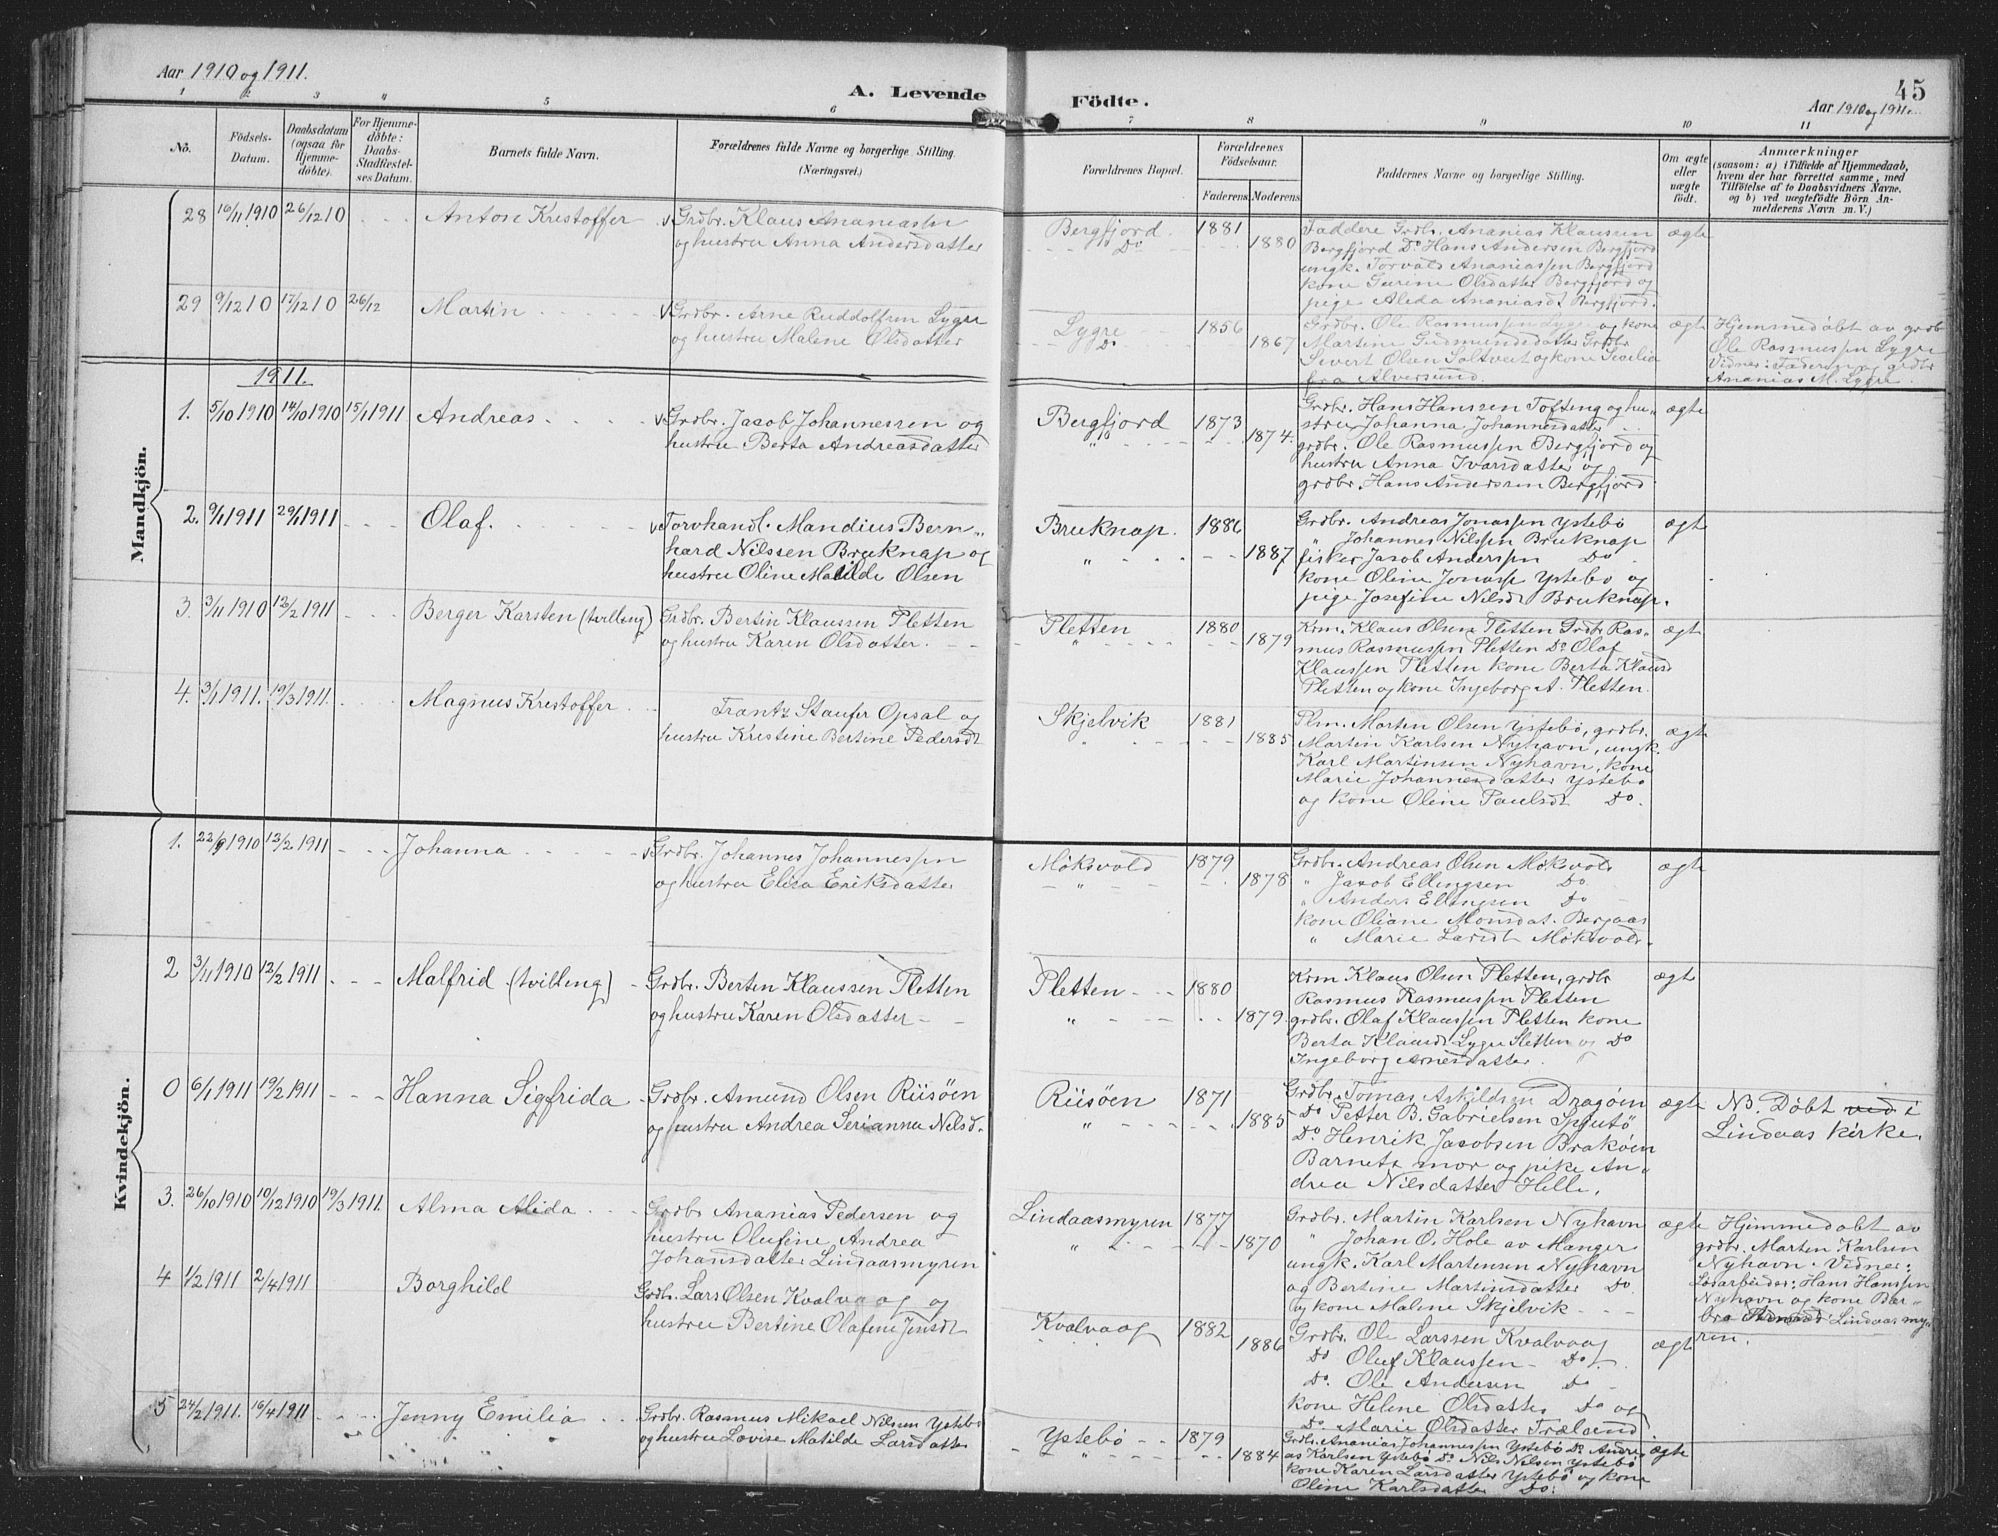 Aar 1910 og 1911.
A. Levende Födte.
45
Aar 1910 og 1911.
1 2 3 4 5 6 7 8 9 10 11
No.
Födsels-
Datum.
Daabsdatum
(ogsaa for
Hjemme-
døbte).
For Hjemme-
døbte:
Daabs-
Stadfæstel-
ses Datum.
Barnets fulde Navn.
Forældrenes fulde Navne og borgerlige Stilling.
(Næringsvei.)
Forældrenes Bopæl.
Forældrenes
Födselsaar.
Faderens. Moderens.
Faddernes Navne og borgerlige Stilling.
Om ægte
eller
uægte
født.
Anmærkninger
(saasom: a) i Tilfælde af Hjemmedaab,
hvem der har forrettet samme, med
Tilföielse af to Daabsvidners Navne.
og b) ved uægtefödte Börn An-
melderens Navn m. V.)
28 16/11 1910 26/12 10 Anton Krestoffer
Grdbr. Klaus Ananiassen
og hustru Anna Andersdatter
Bergfjord. Do
1881 1880
Faddere Grdbr. Ananias Klaussen
Bergfjord Do Hans Andersen Bergfjord
ungk. Torvald Ananiassen Bergfjord
kone Gurine Olsdatter Bergfjord og
pige Alida Ananiasdt Bergfjord.
ægte
29 9/12 10 17/12 10 26/12 Martin
Grdbr. Arne Ruddolfsen Lygre
og hustru Malene Olsdatter
Lygre Do
1856 1867
Grdbr. Ole Rasmussen Lygre og kone
Martine Gudmundsdatter Grdbr
Sivert Olsen Soltveit og kone Secilia
fra Alversund.
ægte
Hjemmedøbt av grdbr
Ole Rasmussen Lygre
Vidner: Faderen og grdbr
Ananias M. Lygre.
1911.
Mandkjön.
1. 5/10 1910 14/10 1910 15/1 1911 Andreas
Grdbr. Jacob Johannessen og
hustru Berta Andreasdatter
Bergfjord "
1873 1874.
Grdbr. Hans Hanssen Tofteng og hu-
stru Johanna Johannesdatter
grdbr. Ole Rasmussen Bergfjord og
hustru Anna Ivarsdatter og
grdbr. Hans Anderssen Bergfjord
ægte
2. 9/1 1911 29/1 1911 Olaf.
Torvhandl. Mandius Bern-
hard Nilssen Bruknap og
hustru Oline Matilde Olsen
Bruknap. "
1886 1887
Grdbr. Andreas Jonassen Ystebö
" Johannes Nilssen Bruknap
fisker Jacob Anderssen Do
kone Oline Jonasse Ystebö og
pige Josefine Nilsdt Bruknap.
ægte
3. 3/11 1910 12/2 1911 Berger Karsten (tvilling)
Grdbr. Bertin Klaussen Pletten
og hustru Karen Olsdatter.
Pletten "
1880 1879
Krm. Klaus Olsen Pletten Grdbr Ras-
mus Rasmussen Pletten Do Olaf
Klaussen Pletten kone Berta Klausd
Pletten og kone Ingeborg A. Pletten.
ægte
4. 3/1 1911. 19/3 1911. Magnus Krestoffer
Frantz Staufer Opsal og
hustru Kristine Bertine Pedersdt
Skjelvik "
1881 1885
Plm. Martin Olsen Ystebö, grdbr.
Martin Karlsen Nyhavn, ungk.
Karl Martinsen Nyhavn, kone
Marie Johannesdatter Ystebö
og kone Oline Paulsdt Do.
ægte
Kvindekjön.
1. 22/9 1910 12/2 1911 Johanna
Grdbr. Johannes Johannessen
og hustru Elisa Eriksdatter
Möksvold "
1879 1878
Grdbr. Andreas Olsen Möksvold
" Jacob Ellingsen Do
" Anders Ellingsen Do
kone Oliane Monsdat. Bergaas
" Marie Larsdt Möksvold.
ægte
2 3/11 1910 12/2 1911 Malfrid (tvilling)
Grdbr. Berten Klaussen Pletten
og hustru Karen Olsdatter
Pletten "
1880 1879.
Krm Klaus Olsen Pletten, grdbr
Rasmus Rasmussen Pletten
grdbr. Olaf Klaussen Pletten kone
Berta Klausdt Lygre Sletten og Do
Ingeborg Arnesdatter.
ægt
0 6/1 1911 19/2 1911 Hanna Sigfrida
Grdbr. Amund Olsen Riisöen
og hustru Andrea Serianna Nilsd.
Riisöen "
1871 1885
Grdbr. Tomas Askildsen Dragöen
Do Petter B. Gabrielsen Sputö
Do Henrik Jacobsen Braköen
Barnets mor og pike An-
drea Nilsdatter Hille.
ægte
NB. Döbt ved i
Lindaas kirke.
3. 26/10 1910 10/12 1910 19/3 1911. Alma Alida
Grdbr Ananias Pedersen og
hustru Olufine Andrea
Johansdatter Lindaasmyren
Lindaasmyren "
1877 1870
Grdbr. Martin Karlsen Nyhavn
" Johan O. Hole av Manger
ungk. Karl Martensen Nyhavn
og Bertine Martinsdatter Do
og kone Malene Skjelvik
ægte
Hjimmedöbt av
grdbr. Marten Karlsen
Nyhavn. Vidner:
Lösarbeider: Hans Hanssen
Nyhavn og kone Bar-
bra Lindaasmy-
ren.
4 1/2 1911 2/4 1911 Borghild
Grdbr. Lars Olsen Kvalvaag og
hustru Bertine Olafine Jensdt
Kvalvaag
1882 1886
Grdbr. Ole Larssen Kvalvaag
Do Oluf Klaussen Do
Do. Ole Andersen Do
kone Helene Olsdatter Do og
Do. Marie Olsdatter Træland
ægt
5 24/2 1911. 16/4 1911 Jenny Emilia
Grdbr. Rasmus Mikael Nilsen Ystebö
og hustru Lovise Matilde Larsdatter
Ystebö "
1879 1884
Grdbr. Ananias Johannessen Ystebö Do Andre-
as Karlsen Ystebö Do Nils Nilsen Ystebö
kone Karen Larsdatter Ystebö og kone
Oline Karlsdatter Do.
ægte